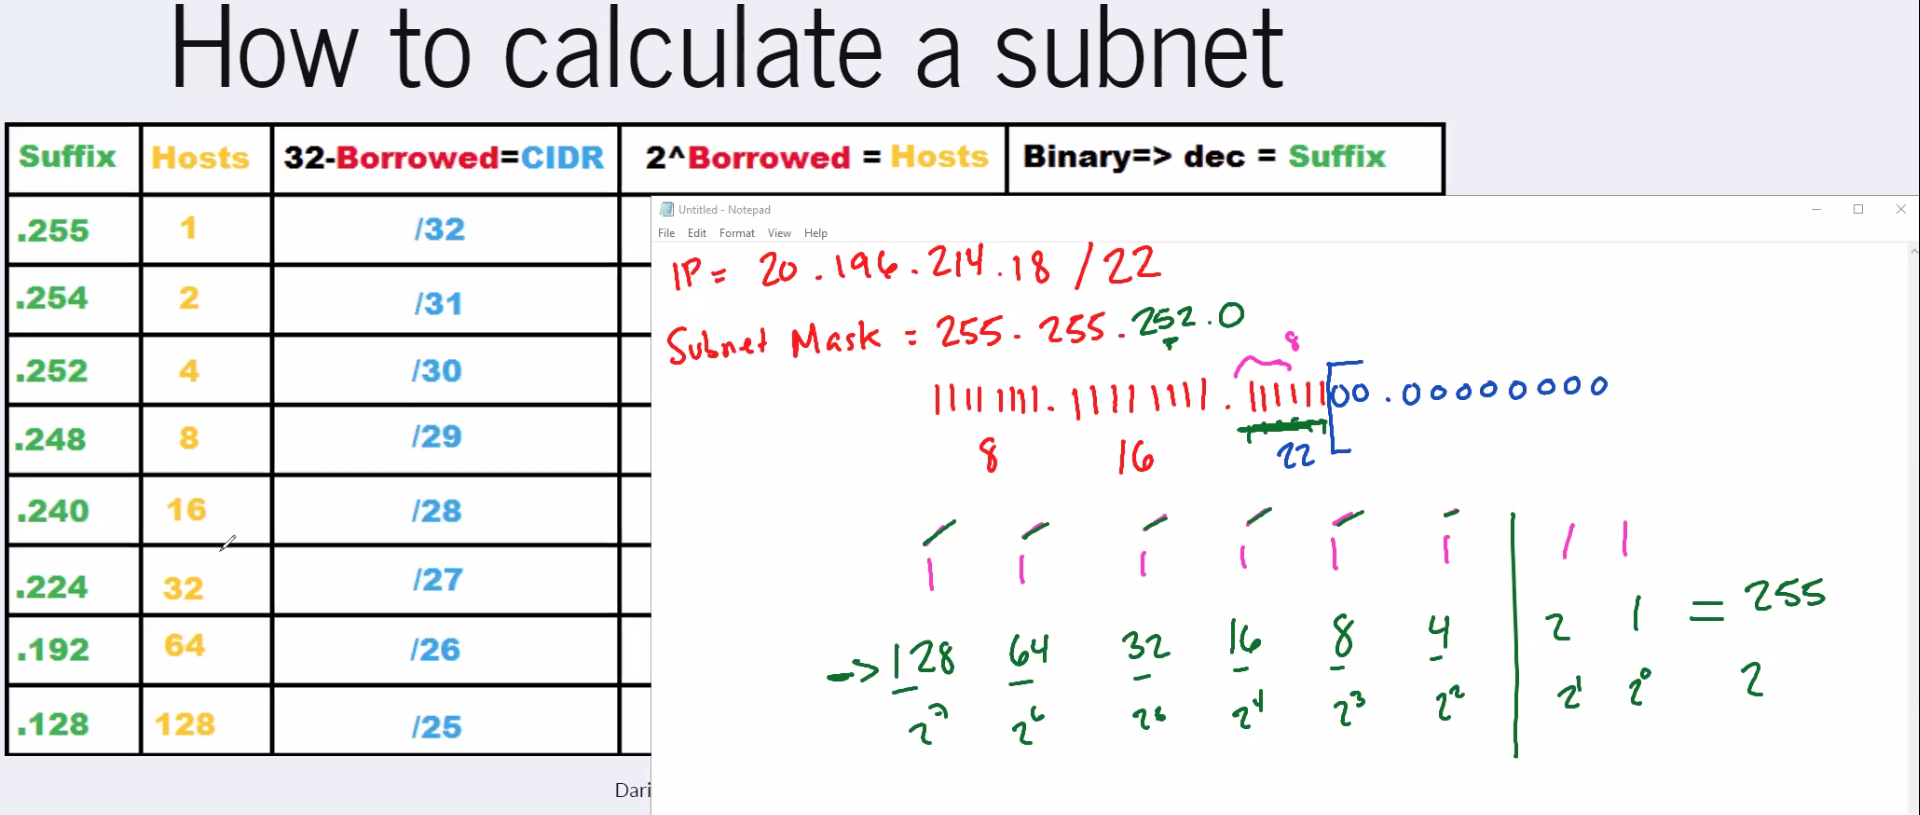 How to calculate a subnet
Suffix Hosts 32-Borrowed=CIDR 2^Borrowed = Hosts Binary=> dec = Suffix
.255 1 /32
.254 2 /31
.252 4 /30
.248 8 /29
.240 16 /28
.224 32 /27
.192 64 /26
.128 128 /25
Dari
Untitled - Notepad
File Edit Format View Help
IP = 20.196.214.18 /22
Subnet Mask = 255.255.252.0
8
11111111.11111111.11111100.00000000
8 16 22
1 1 1 1 1 1 1 1
128 64 32 16 8 4 2 1 = 255
2^7 2^6 2^5 2^4 2^3 2^2 2^1 2^0 2